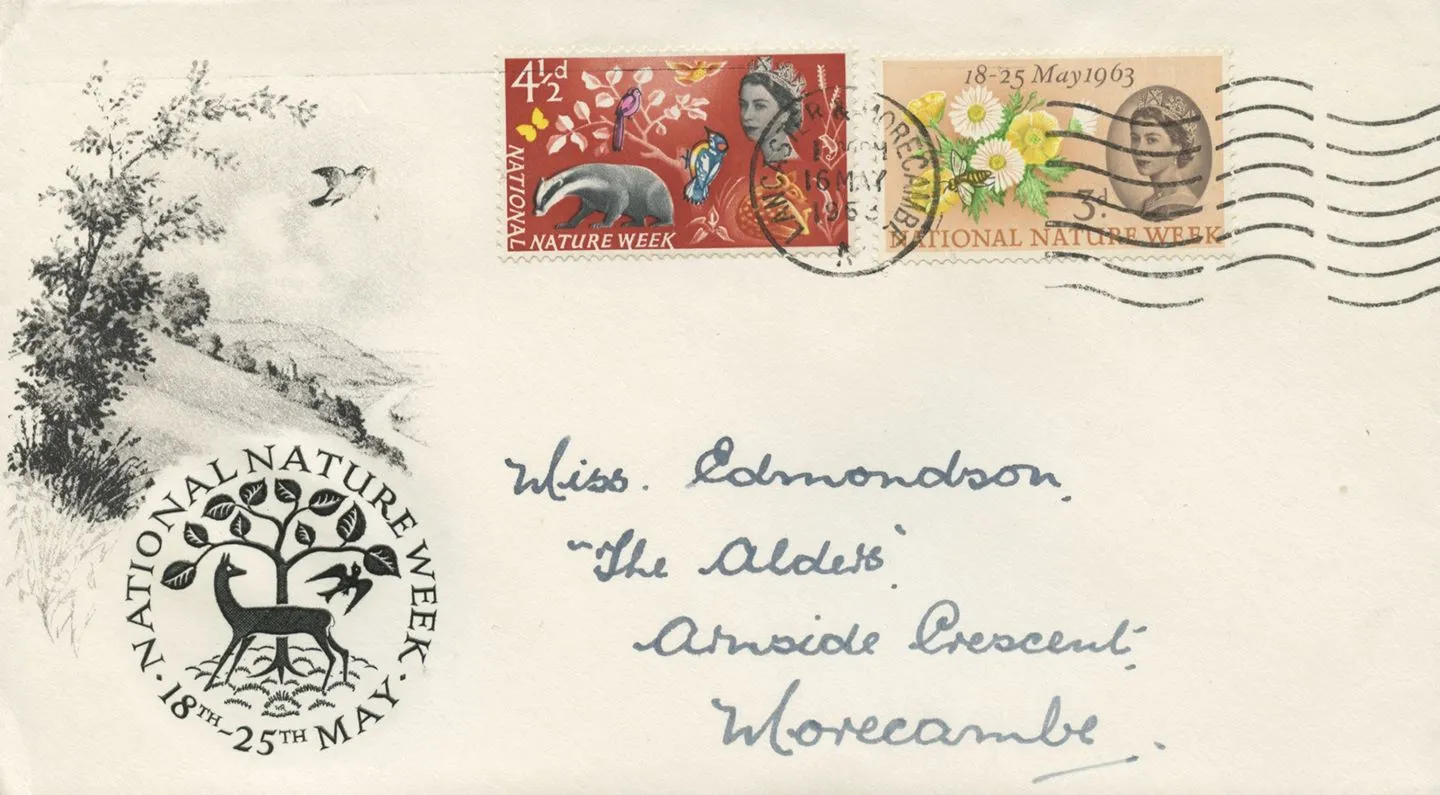 4½d
NATIONAL
NATURE WEEK
18-25 May 1963
3d.
NATIONAL NATURE WEEK
LANCASTER & MORECAMBE
16 MAY
1963
A
NATIONAL NATURE WEEK · 18TH-25TH MAY ·
Miss. Edmondson,
"The Alders",
Arnside Crescent,
Morecambe.